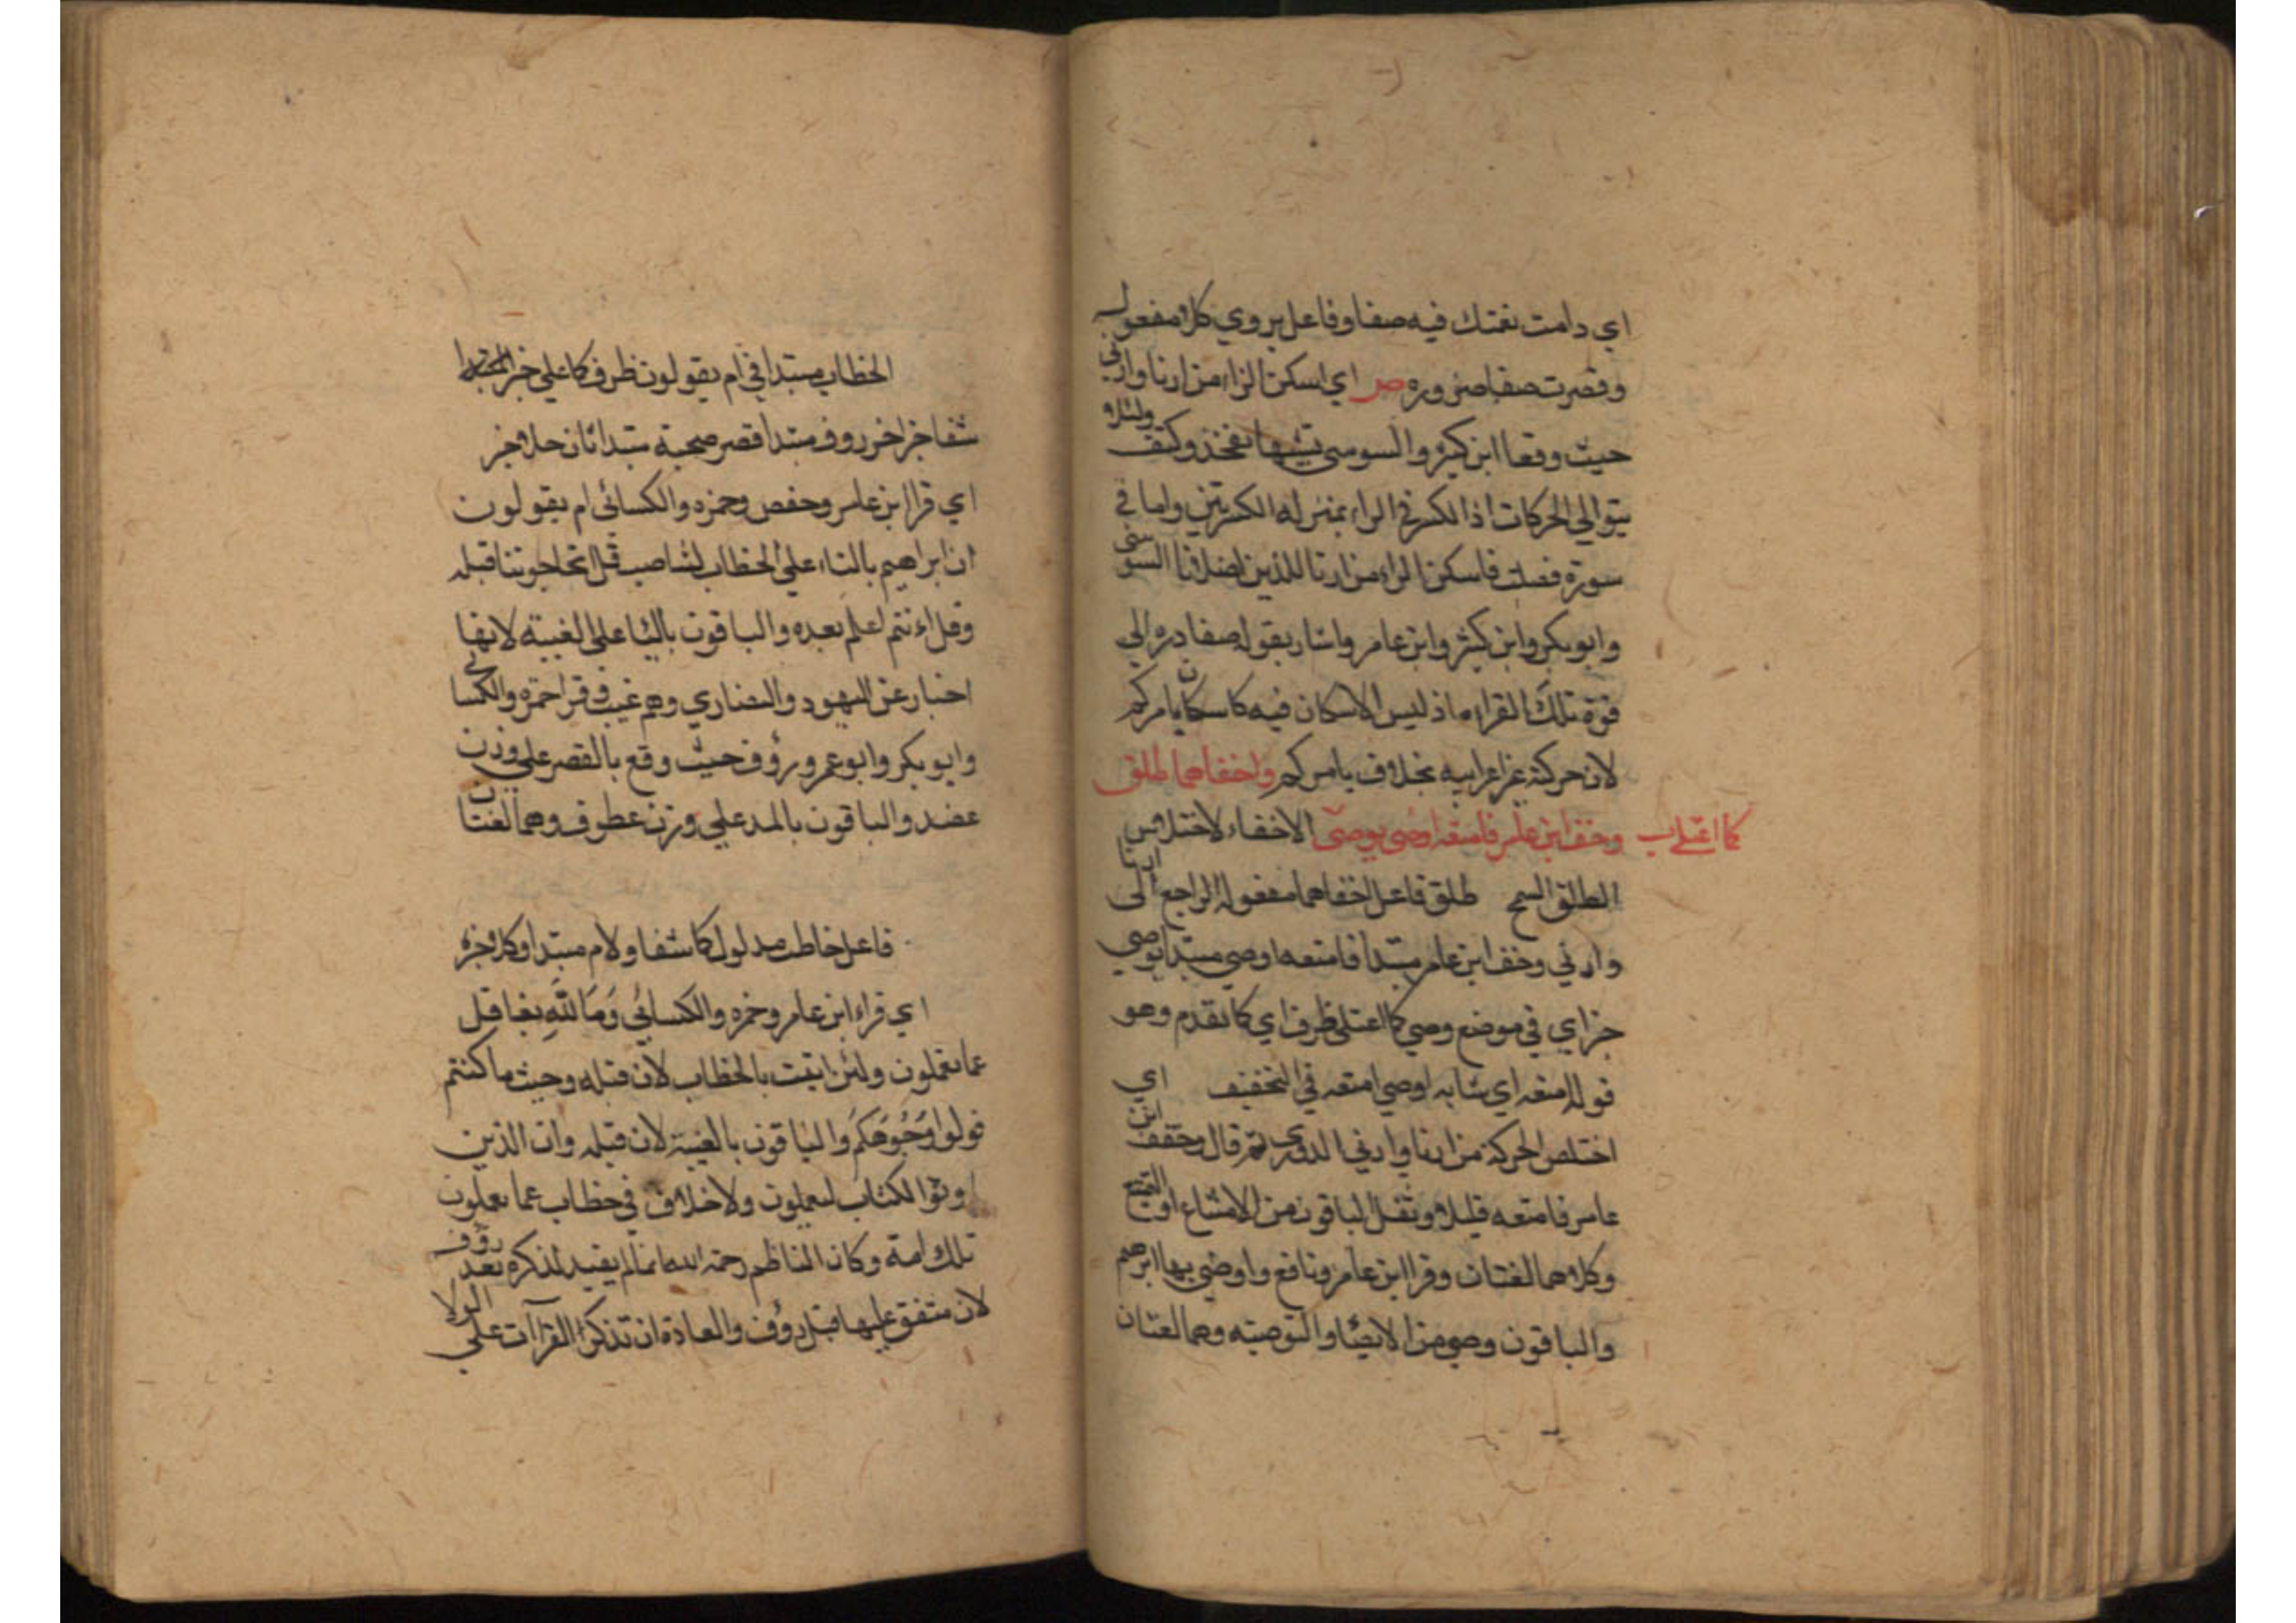 اي دامت نعمتك فيه صفا وفاعل يروي كلا مفعوله
وقصرت صفا ضرورة ص اي اسكن الراء من ارنا وارني
حيث وقعا ابن كثير والسوسي تشبيها بفخذ وكتف ولئلا
يتوالي الحركات اذ الكسر في الراء بمنزله الكسرتين واما في
سورة فصلت فاسكن الراء من ارنا للذين اضلانا السوسي
وابو بكر وابن كثير وابن عامر واشار بقوله صفا دره الي
قوة تلك القراءه اذ ليس الاسكان فيه كاسكان يامركم
لان حركة غير اعرابيه بخلاف يامركم واخفاهما طلق
وخف ابن عامر فامتعه اوصي بوصي كما اعتلي الاخفاء لاختلاس
الطلق السمح طلق فاعل اخفاهما مفعوله الراجع الي ارنا
وارني وخف ابن عامر مبتدا فامتعه اوصي مبتدا بوصي
خبر اي في موضع وصي كما اعتلي ظرف اي كما تقدم وهو
قوله امتعه اي شابه اوصي امتعه في التخفيف اي
اختلس الحركة من ارنا وارني الدوري ثم قال وخفف ابن
عامر فامتعه قليلا وثقل الباقون من الامتاع او التمتيع
وكلاهما لغتان وقرا ابن عامر ونافع واوصي بها ابرهيم
والباقون وصي من الايصا والتوصيه وهما لغتان
الخطاب مبتدا في ام يقولون ظرف كما علي خبر المبتدا
شفا خبر اخر روف مبتدا قصر صحبته مبتدا ثان حلا خبر
اي قرا ابن عامر وحفص وحمزه والكسائي ام يقولون
ان ابراهيم بالتاء علي الخطاب لناصب قل اتحاجوننا قبله
وقل اءنتم اعلم بعده والباقون باليا علي الغيبة لانها
اخبار عن اليهود والنصاري وهم غيب وقرا حمزه والكسائي
وابو بكر وابو عمرو رؤف حيث وقع بالقصر علي وزن
عضد والباقون بالمد علي وزن عطوف وهما لغتان
فاعل خاطب مدلول كما شفا ولام مبتدا وكلا خبره
اي قراء ابن عامر وحمزه والكسائي وما الله بغافل
عما تعملون ولئن اتيت بالخطاب لان قبله وحيث ما كنتم
فولوا وجوهكم والباقون بالغيبة لان قبله وان الذين
اوتوا الكتاب ليعلمون ولا خلاف في خطاب عما تعملون
تلك امة وكان الناظم رحمه الله انما لم يقيد لذكره بعد رؤف
لان متفق عليها قبل رؤف والعادة ان تذكر القراآت علي الولا